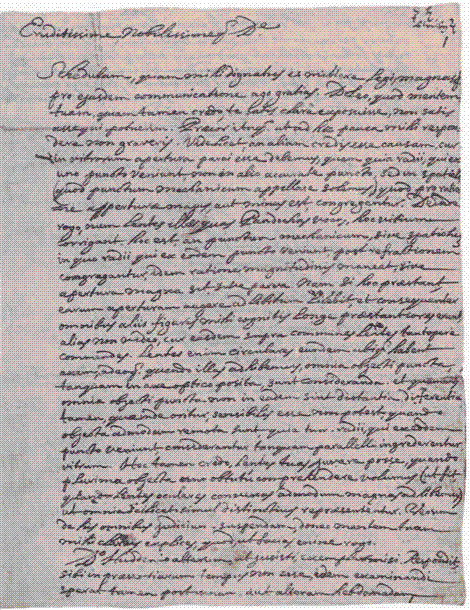 Eruditissime Nobilissimeq; De
Schedulam, quam mihi dignatus es mittere legi, magnasq;
pro ejusdem communicatione ago gratias. Doleo, quod mentem
tuam, quam tamen credo te satis clarè exposuisse, non satis
assequi potuerim. ut ad hæc pauca mihi respon
dere non graveris. Videlicet an aliam credis esse causam, cur
in vitrorum apertura parci esse debemus, quam quia radii, qui ex
uno puncto veniunt non in alio accurate puncto, sed in spatiolo
(quod punctum mechanicum appellare solemus) quod pro ratio
ne aperturæ majus aut minus est congregantur. Deinde
rogo, num lentes illæ, quas Pandochas vocas, hoc vitium
corrigant hoc est an punctum mechanicum, sive spatiolum
in quo radii qui ex eodem puncto veniunt post refractionem
congregantur, idem ratione magnitudinis maneat, sive
apertura magna sit sive parva. Nam si hoc præstant
earum aperturam augere ad libitum licebit et consequenter
omnibus aliis figuris mihi cognitis longe præstantiores erunt
alias non video, cur easdem supra communes lentes tantopere
commendes. Lentes enim circulares eundem ubiq; habent
axem, ideoq; quando illas adhibemus, omnia objecti puncta,
tanquam in axe optico posita, sunt consideranda. et quamvis
omnia objecti puncta non in eadem sint distantia, differentia
tamen, quæ inde oritur, sensibilis esse non potest, quando
objecta admodum remota sunt quia tum radii, qui ex eodem
puncto veniunt considerantur tanquam paralleli ingrederentur
vitrum. Hoc tamen credo, lentes tuas juvare posse, quando
plurima objecta uno obtutu comprehendere volumus (ut fit
quando lentes oculares convexas admodum magnas adhibemus)
ut omnia simul distinctius repræsententur. Verum
de his omnibus judicium suspendam, donec mentem tuam
mihi clarius explices, quod ut facias enixe rogo.
Do Huddenio alterum ut jussisti exemplar misi. Respondit,
sibi in præsentiarum tempus non esse, idem examinandi
sperat tamen post unam, aut alteram hebdomadam,